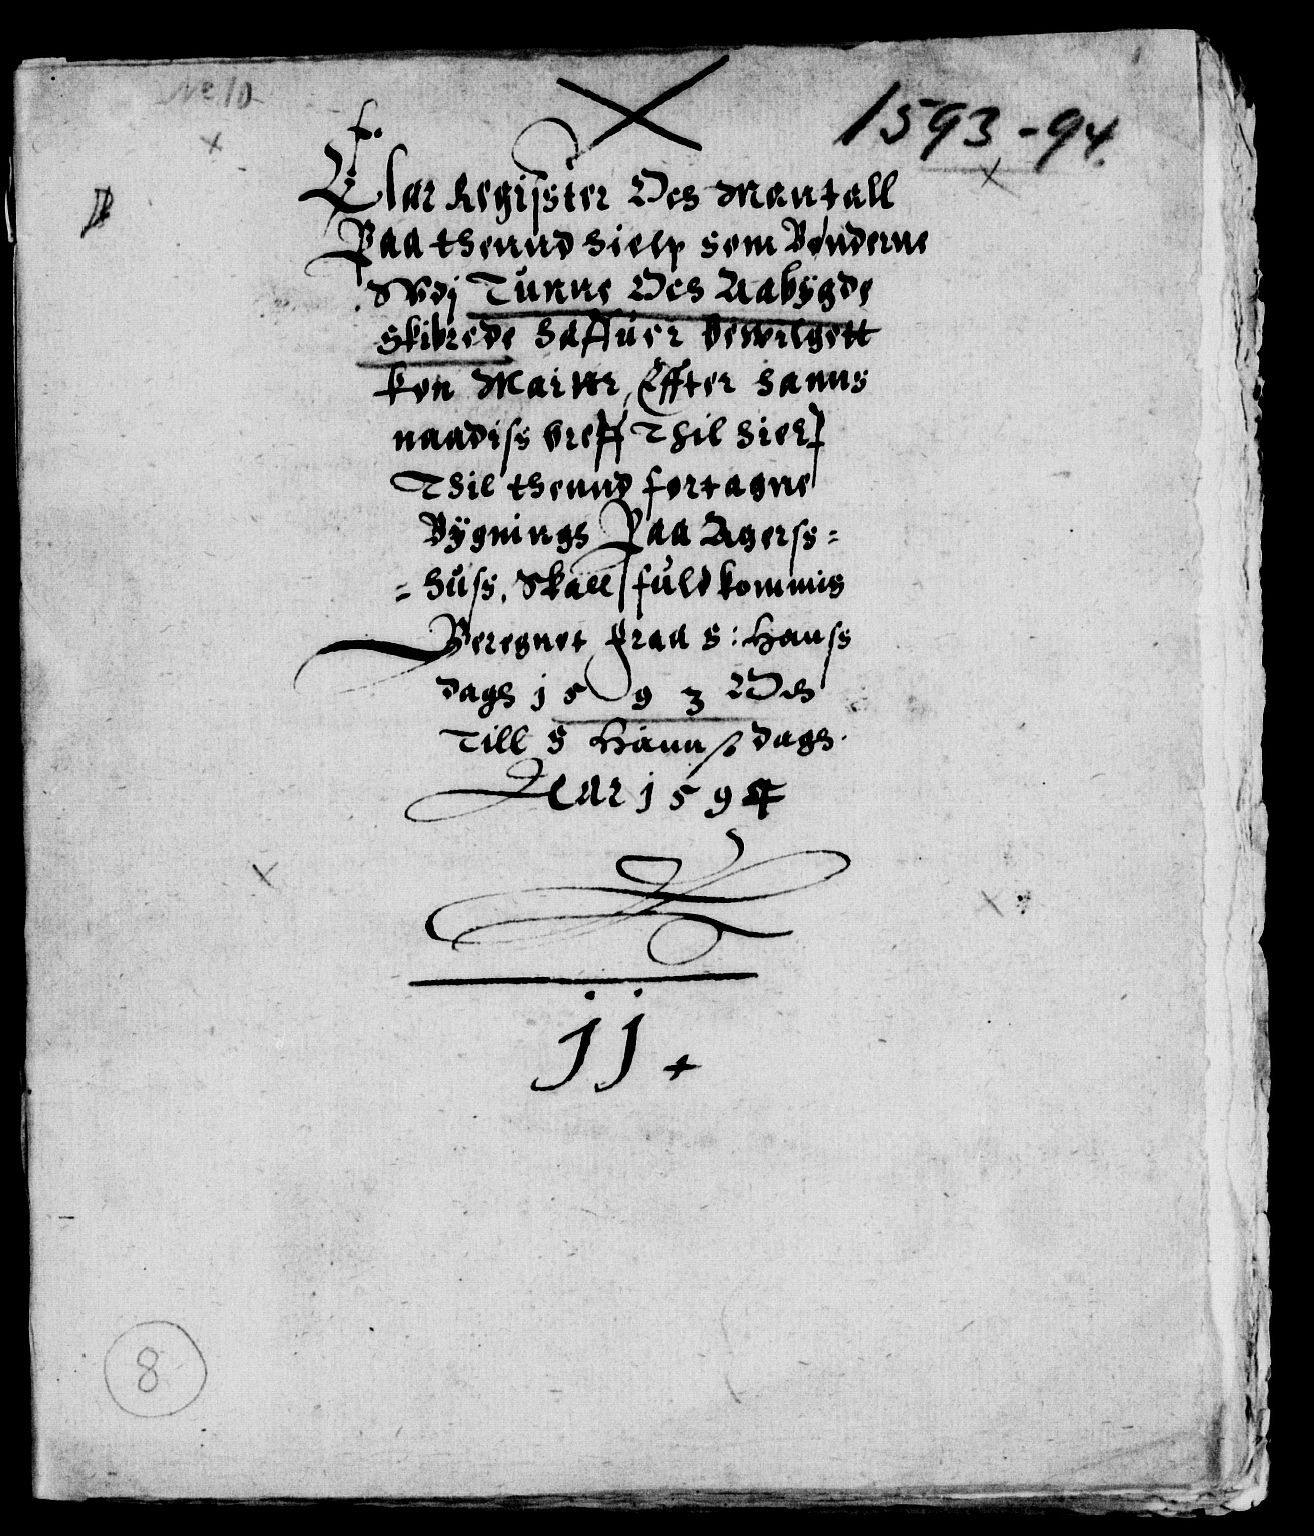 No 10
1593-94.
Clar Register Och Mantall
Paa thennd hielp som Bønderne
Wdj Tunne Och Aabÿgde
Skibrede haffuer bewilgett
kon Maitt, Effter hanns
naadiss breff Thil hielp
Thil thennd fortagne
Bÿgnings Paa Agerss=
=huss, Skall fuldkommis
Beregnet fraa S: Hanss
dagh 1593 Och
Till S Hannss dagh.
Aar 1594
jj
8